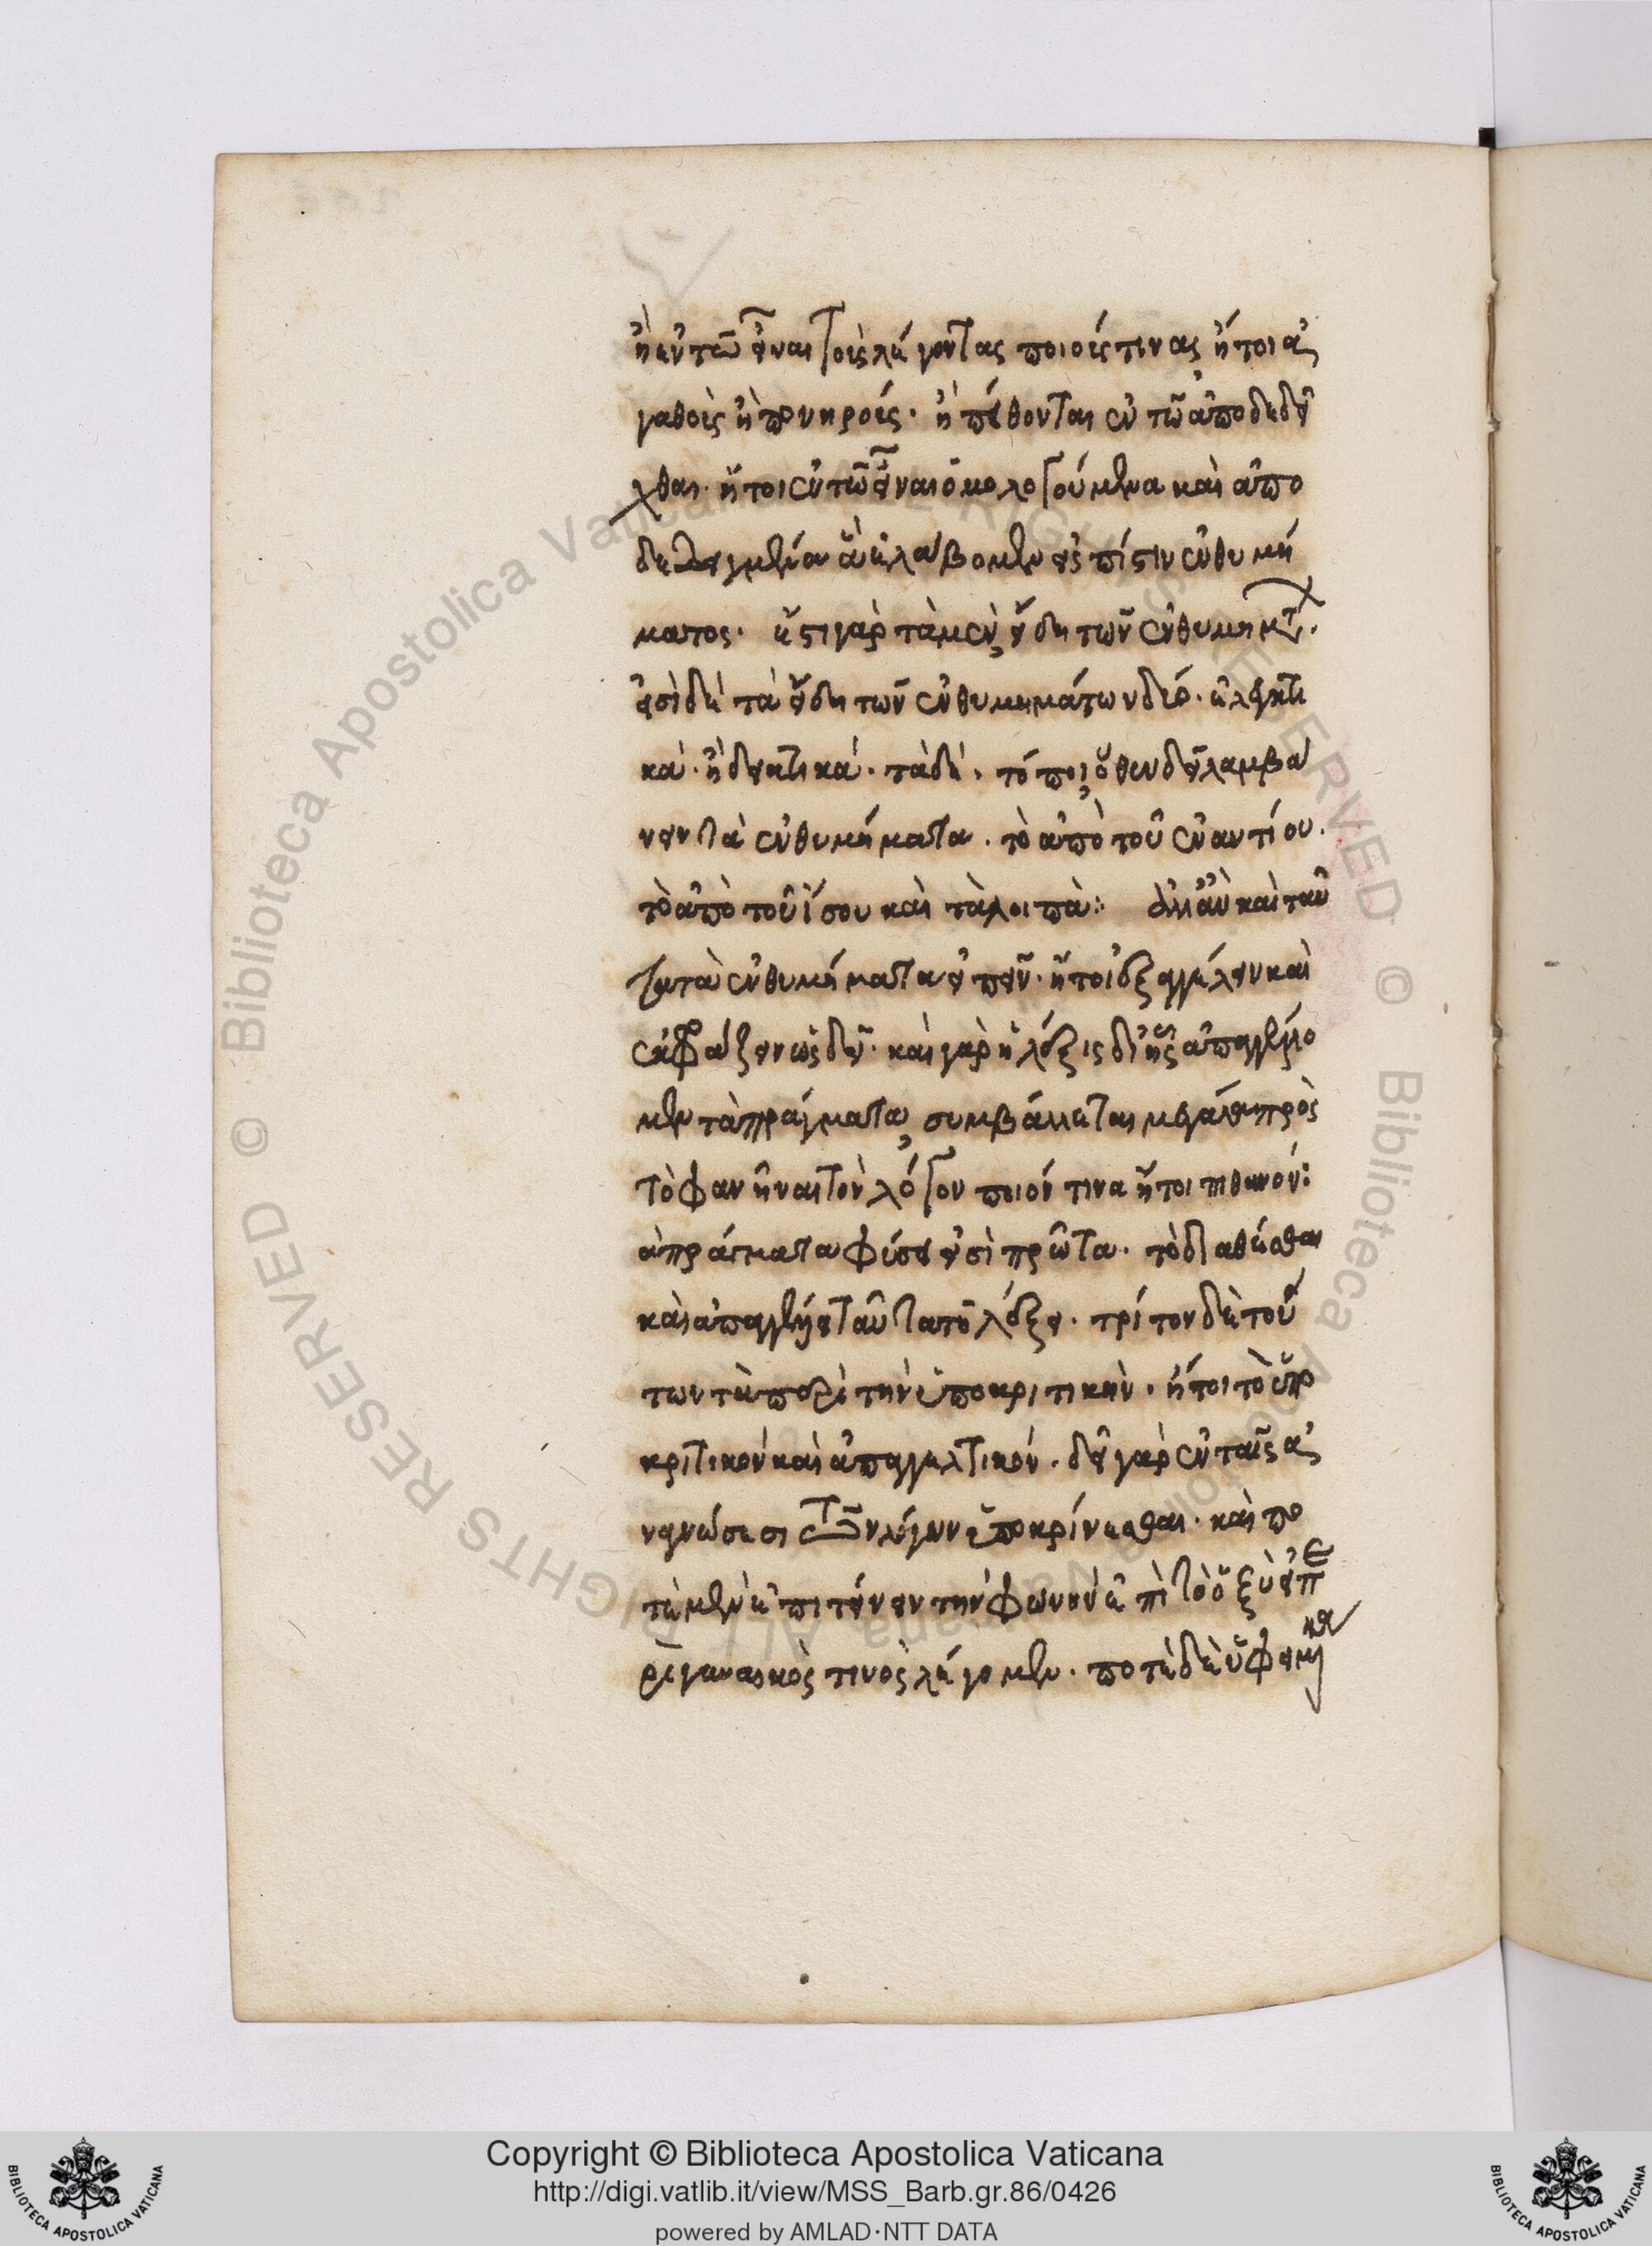 ἢ ἐν τῶ εἶναι τοὺς λέγοντας ποιούς τινας ἤτοι ἀ
γαθοὺς ἢ πονηρούς· ἢ πείθονται ἐν τῶ ἀποδεδεῖ
χθαι· ἤτοι ἐν τῶ εἶναι ὁμολογούμενα καὶ ἀπο
δεδειγμένα ἃ ἐλάβομεν εἰς πίστιν ἐνθυμή
ματος· ἔστι γὰρ τὰ μὲν, εἴδη τῶν ἐνθυμημάτ·
εἰσὶ δὲ τὰ εἴδη τῶν ἐνθυμημάτων δύο· ἐλεγκτι
κὰ· ἢ δεικτικά· τὰ δὲ, τόποι, ὅθεν δεῖ λαμβά
νειν τὰ ἐνθυμήματα· τὸ ἀπὸ τοῦ ἐναντίου·
τὸ ἀπὸ τοῦ ἴσου καὶ τὰ λοιπὰ: ἀλλ' ἂν καὶ ταῦ
τα τὰ ἐνθυμήματα εἰπεῖν· ἤτοι ἐξαγγέλειν καὶ
ἐκφράζειν ὡς δεῖ· καὶ γὰρ ἡ λέξις δι' ἧς ἀπαγγέλλο
μεν τὰ πράγματα, συμβάλλεται μεγάλην πρὸς
τὸ φανῆναι τὸν λόγον ποιόν τινα ἤτοι πιθανόν:
ἁ πράγματα φύσει εἰσὶ πρῶτα· τὸ διαθέσθαι
καὶ ἀπαγγέλλει ταῦτα τῆ λέξει· τρίτον δὲ τού
των τὰ περὶ τὴν ὑποκριτικὴν· ἤτοι τὸ ὑπο
κριτικὸν καὶ ἀπαγγελτικόν· δεῖ γὰρ ἐν ταῖς ἀ
ναγνώσεσι τῶν λόγων ὑποκρίνεσθαι· καὶ πο
τὲ μὲν ἐπιτείνειν τὴν φωνὴν ἐπὶ τὸ ὀξὺ εἰ πε
ρὶ γυναικός τινος λέγομεν· ποτὲ δὲ ὑφειμέ